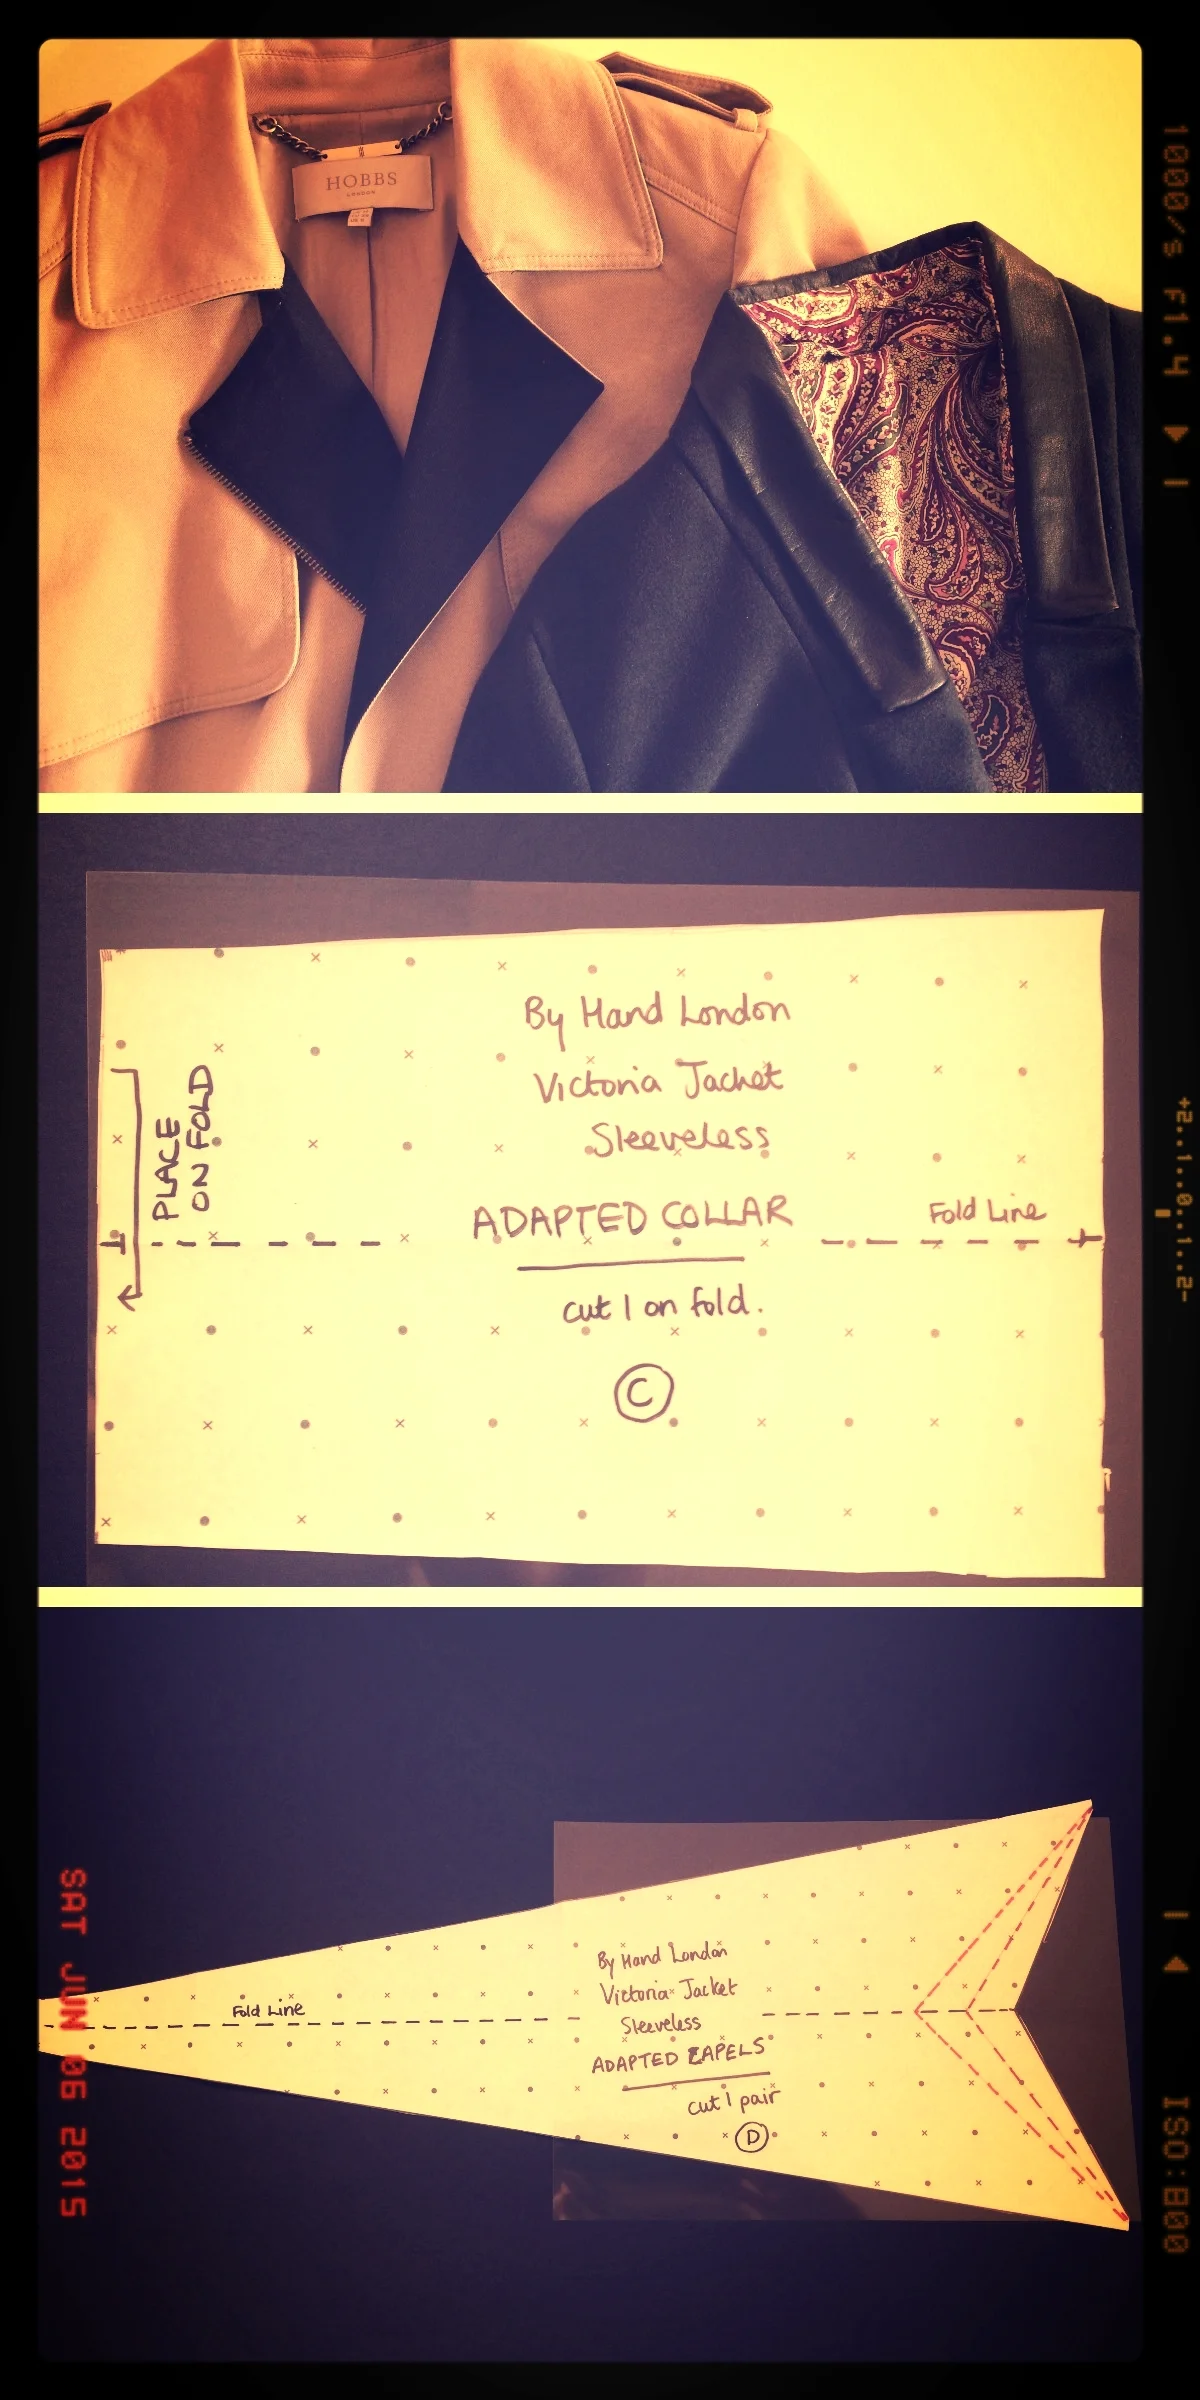 HOBBS
LONDON
By Hand London
Victoria Jacket
Sleeveless
PLACE
ON FOLD
ADAPTED COLLAR
Fold Line
cut 1 on fold.
C
By Hand London
Victoria Jacket
Sleeveless
Fold Line
ADAPTED LAPELS
cut 1 pair
D
SAT JUN 06 2015
1000/s F1.4
+2..1..0..1..2-
ISO:800